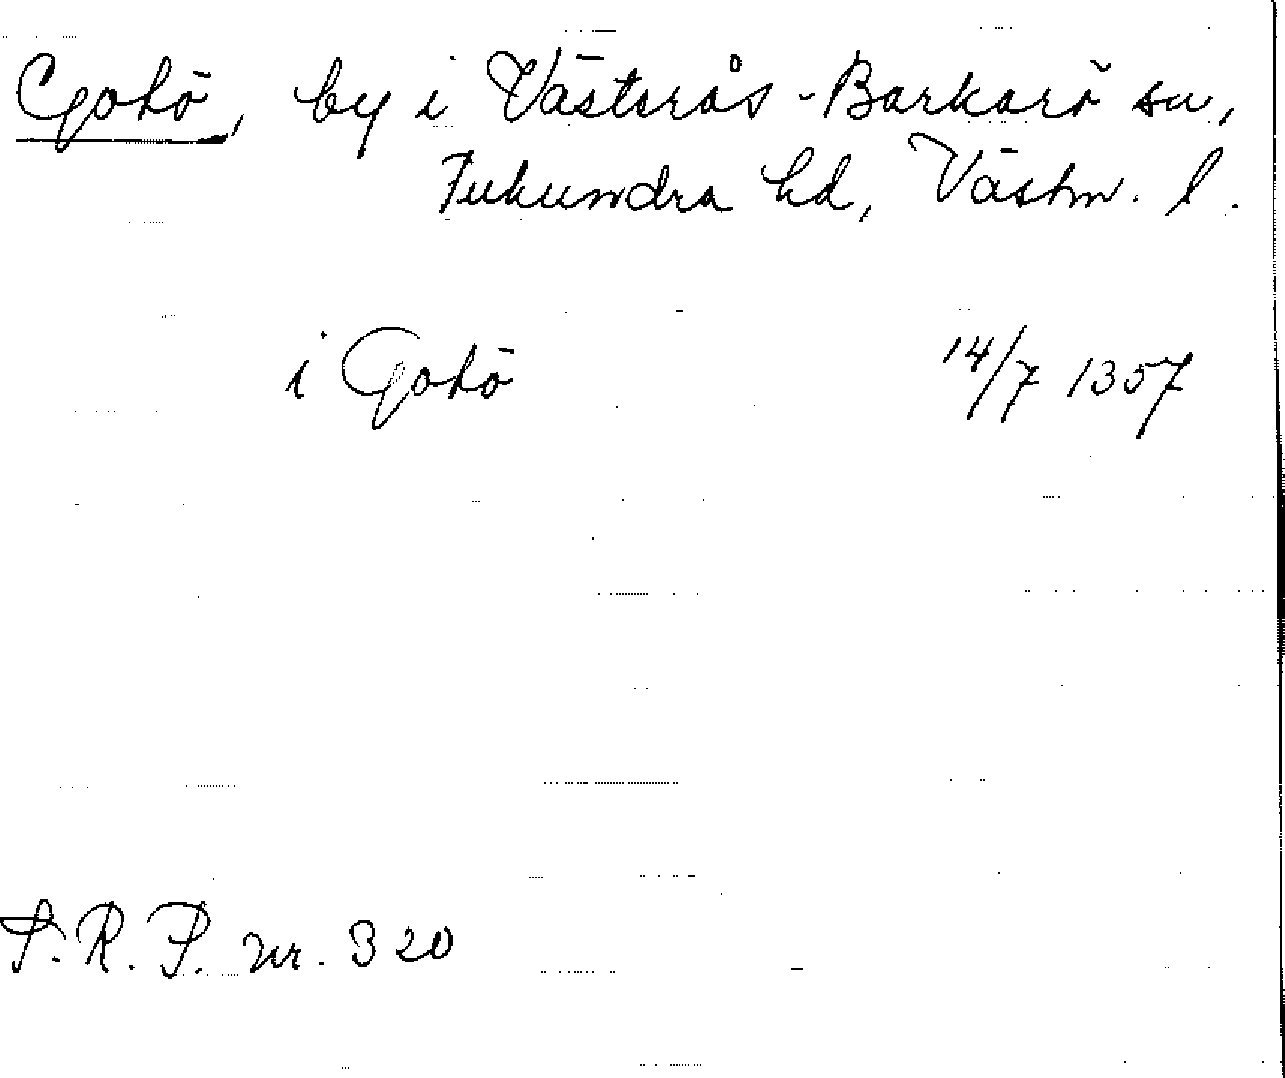 Gotö, by i Västerås-Barkarö sn,
Tuhundra hd, Västm. l.
i Gotö 14/7 1357
S.R.P. nr. 320